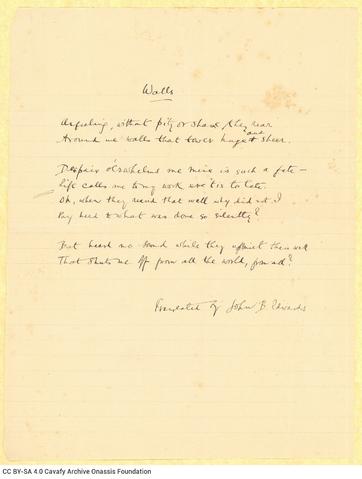 Walls
Unfeeling, without pity or shame, they rear
Around me walls that tower huge and sheer.
Despair o'erwhelms me mine is such a fate —
Life calls me to my work ere 'tis to late.
Oh, when they reared that wall why did not I
Pay heed to what was done so silently?
But heard no sound while they upbuilt their wall
That shuts me off from all the world, from all?
Translated by John B. Edwards
CC BY-SA 4.0 Cavafy Archive Onassis Foundation